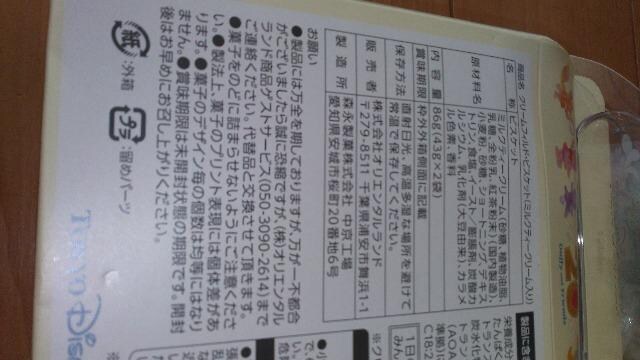 商品名 クリームフィルド・ビスケット(ミルクティークリーム入り)
名称 ビスケット
原材料名 ミルクティークリーム(砂糖、植物油脂、
乳糖、全粉乳、紅茶粉末)(国内製造)、
小麦粉、砂糖、ショートニング、デキス
トリン、食塩、イースト/膨脹剤、炭酸カ
ルシウム、乳化剤(大豆由来)、カラメ
ル色素、香料
内容量 86g(43g×2袋)
賞味期限 枠外外箱側面に記載
保存方法 直射日光、高温多湿な場所を避けて
常温で保存してください。
販売者 株式会社オリエンタルランド
〒279-8511 千葉県浦安市舞浜1-1
製造所 森永製菓株式会社 中京工場
愛知県安城市桜町20番地6号
お願い
●製品には万全を期しておりますが、万が一不都合
がございましたら誠に恐縮ですが、(株)オリエンタル
ランド商品ゲストサービス(050-3090-2614)まで
ご連絡ください。代替品と交換させて頂きます。
●菓子をのどに詰まらせないようにご注意くださ
い。●製法上、菓子のプリント表現には個体差があ
ります。●菓子のデザイン毎の個数は均等にはなり
ません。●賞味期限は未開封状態の期限です。開封
後はお早めにお召し上がりください。
紙:外箱 プラ:留めパーツ
Tokyo Dis
製品に含
栄養成
たんぱく
炭水化
(AO
準拠)
C18-
1日
みん